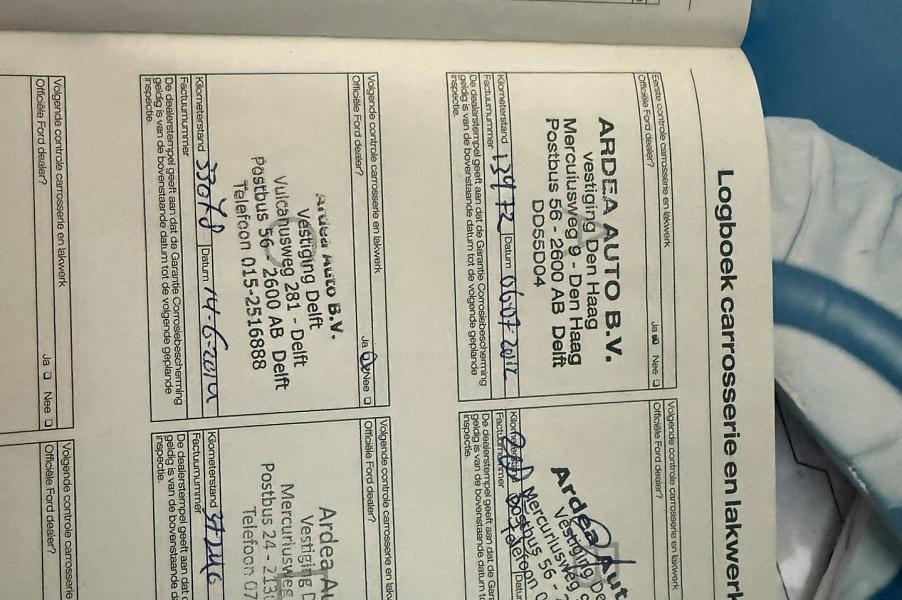 Logboek carrosserie en lakwerk
Eerste controle carrosserie en lakwerk
Officiële Ford dealer? Ja Nee
ARDEA AUTO B.V.
vestiging Den Haag
Mercuriusweg 9 - Den Haag
Postbus 56 - 2600 AB Delft
DD55D04
Kilometerstand 13972 Datum 06-07-2012
Factuurnummer
De dealerstempel geeft aan dat de Garantie Corrosiebescherming
geldig is van de bovenstaande datum tot de volgende geplande
inspectie.
Volgende controle carrosserie en lakwerk
Officiële Ford dealer?
Ardea Aut
Vestiging De
Mercuriusweg
Postbus 56 -
Telefoon 0
Datum
Factuurnummer
De dealerstempel geeft aan dat de Gara
geldig is van de bovenstaande datum to
inspectie.
Volgende controle carrosserie en lakwerk
Officiële Ford dealer? Ja Nee
Ardea Auto B.V.
Vestiging Delft
Vulcanusweg 281 - Delft
Postbus 56 - 2600 AB Delft
Telefoon 015-2516888
Kilometerstand 33078 Datum 14-6-2014
Factuurnummer
De dealerstempel geeft aan dat de Garantie Corrosiebescherming
geldig is van de bovenstaande datum tot de volgende geplande
inspectie.
Volgende controle carrosserie en lakw
Officiële Ford dealer?
Ardea Au
Vestiging D
Mercuriusweg
Postbus 24 - 213
Telefoon 07
Kilometerstand
Factuurnummer
De dealerstempel geeft aan dat d
geldig is van de bovenstaande da
inspectie.
Volgende controle carrosserie en lakwerk
Officiële Ford dealer? Ja Nee
Volgende controle carrosserie
Officiële Ford dealer?